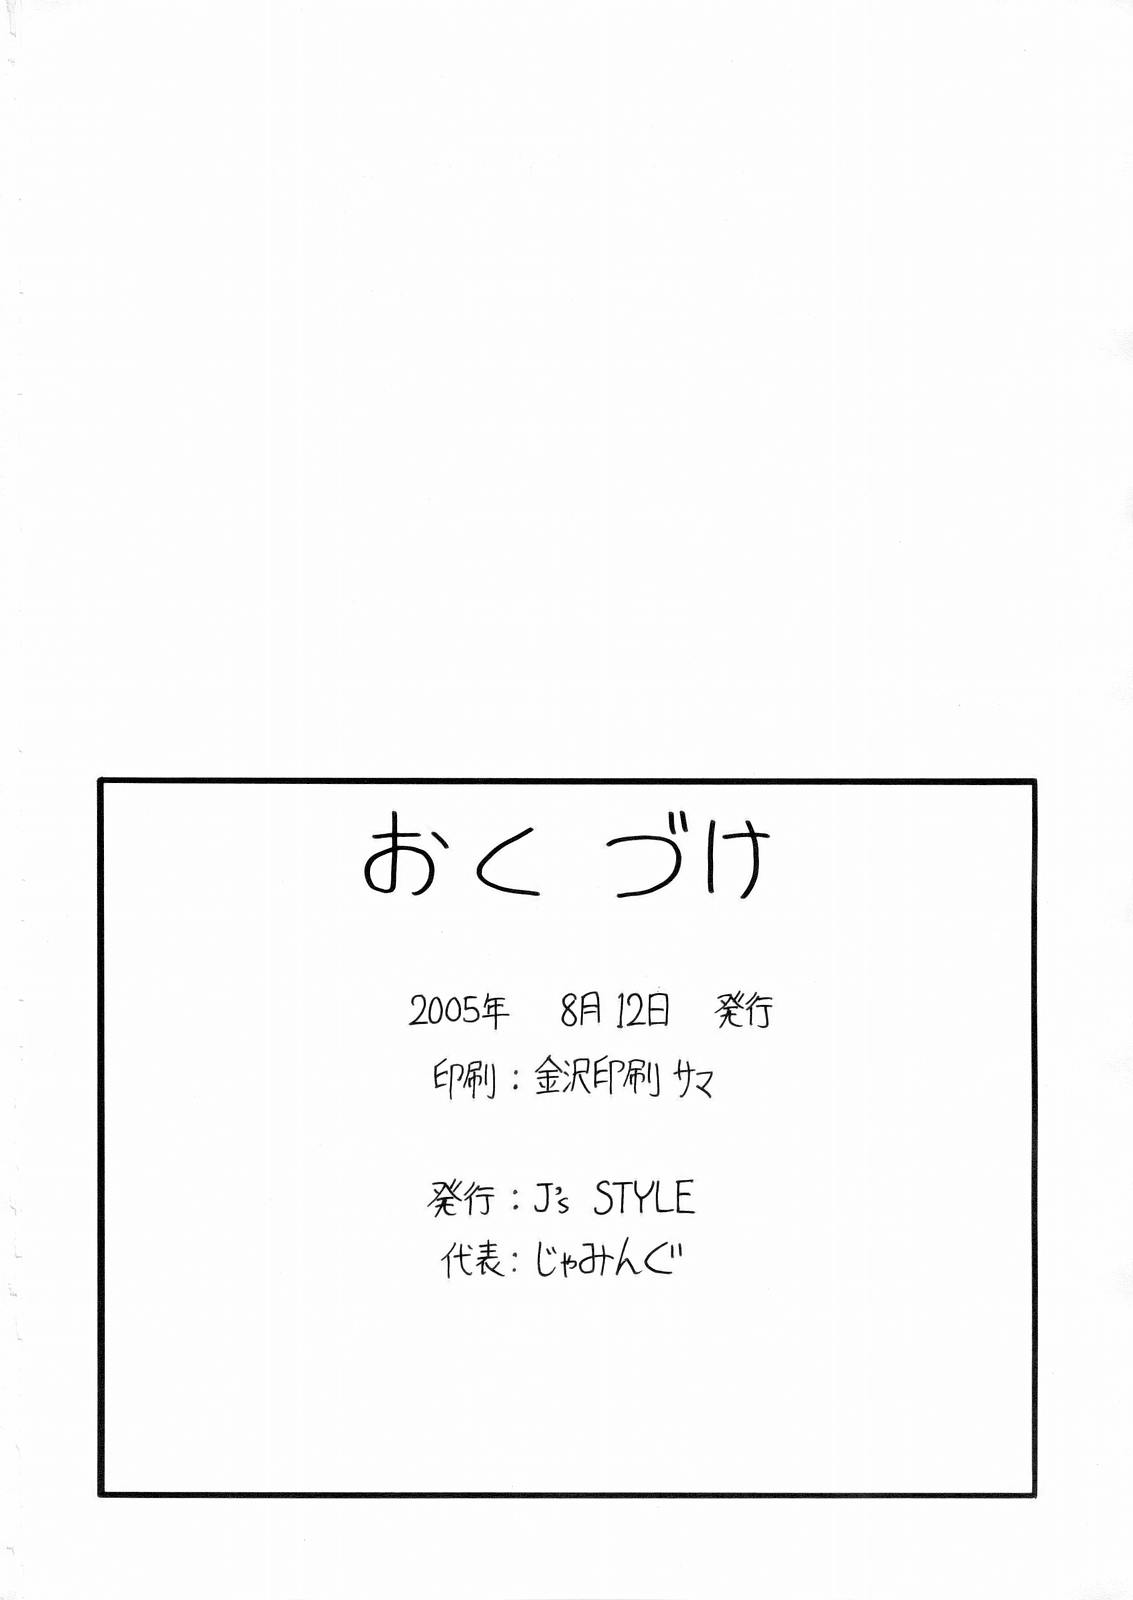 おくづけ
2005年 8月12日 発行
印刷：金沢印刷サマ
発行：J's STYLE
代表：じゃみんぐ